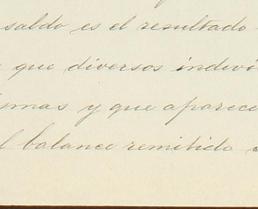 saldo es el resultado
que diversos indivi
umas y que aparece
l balance remitido